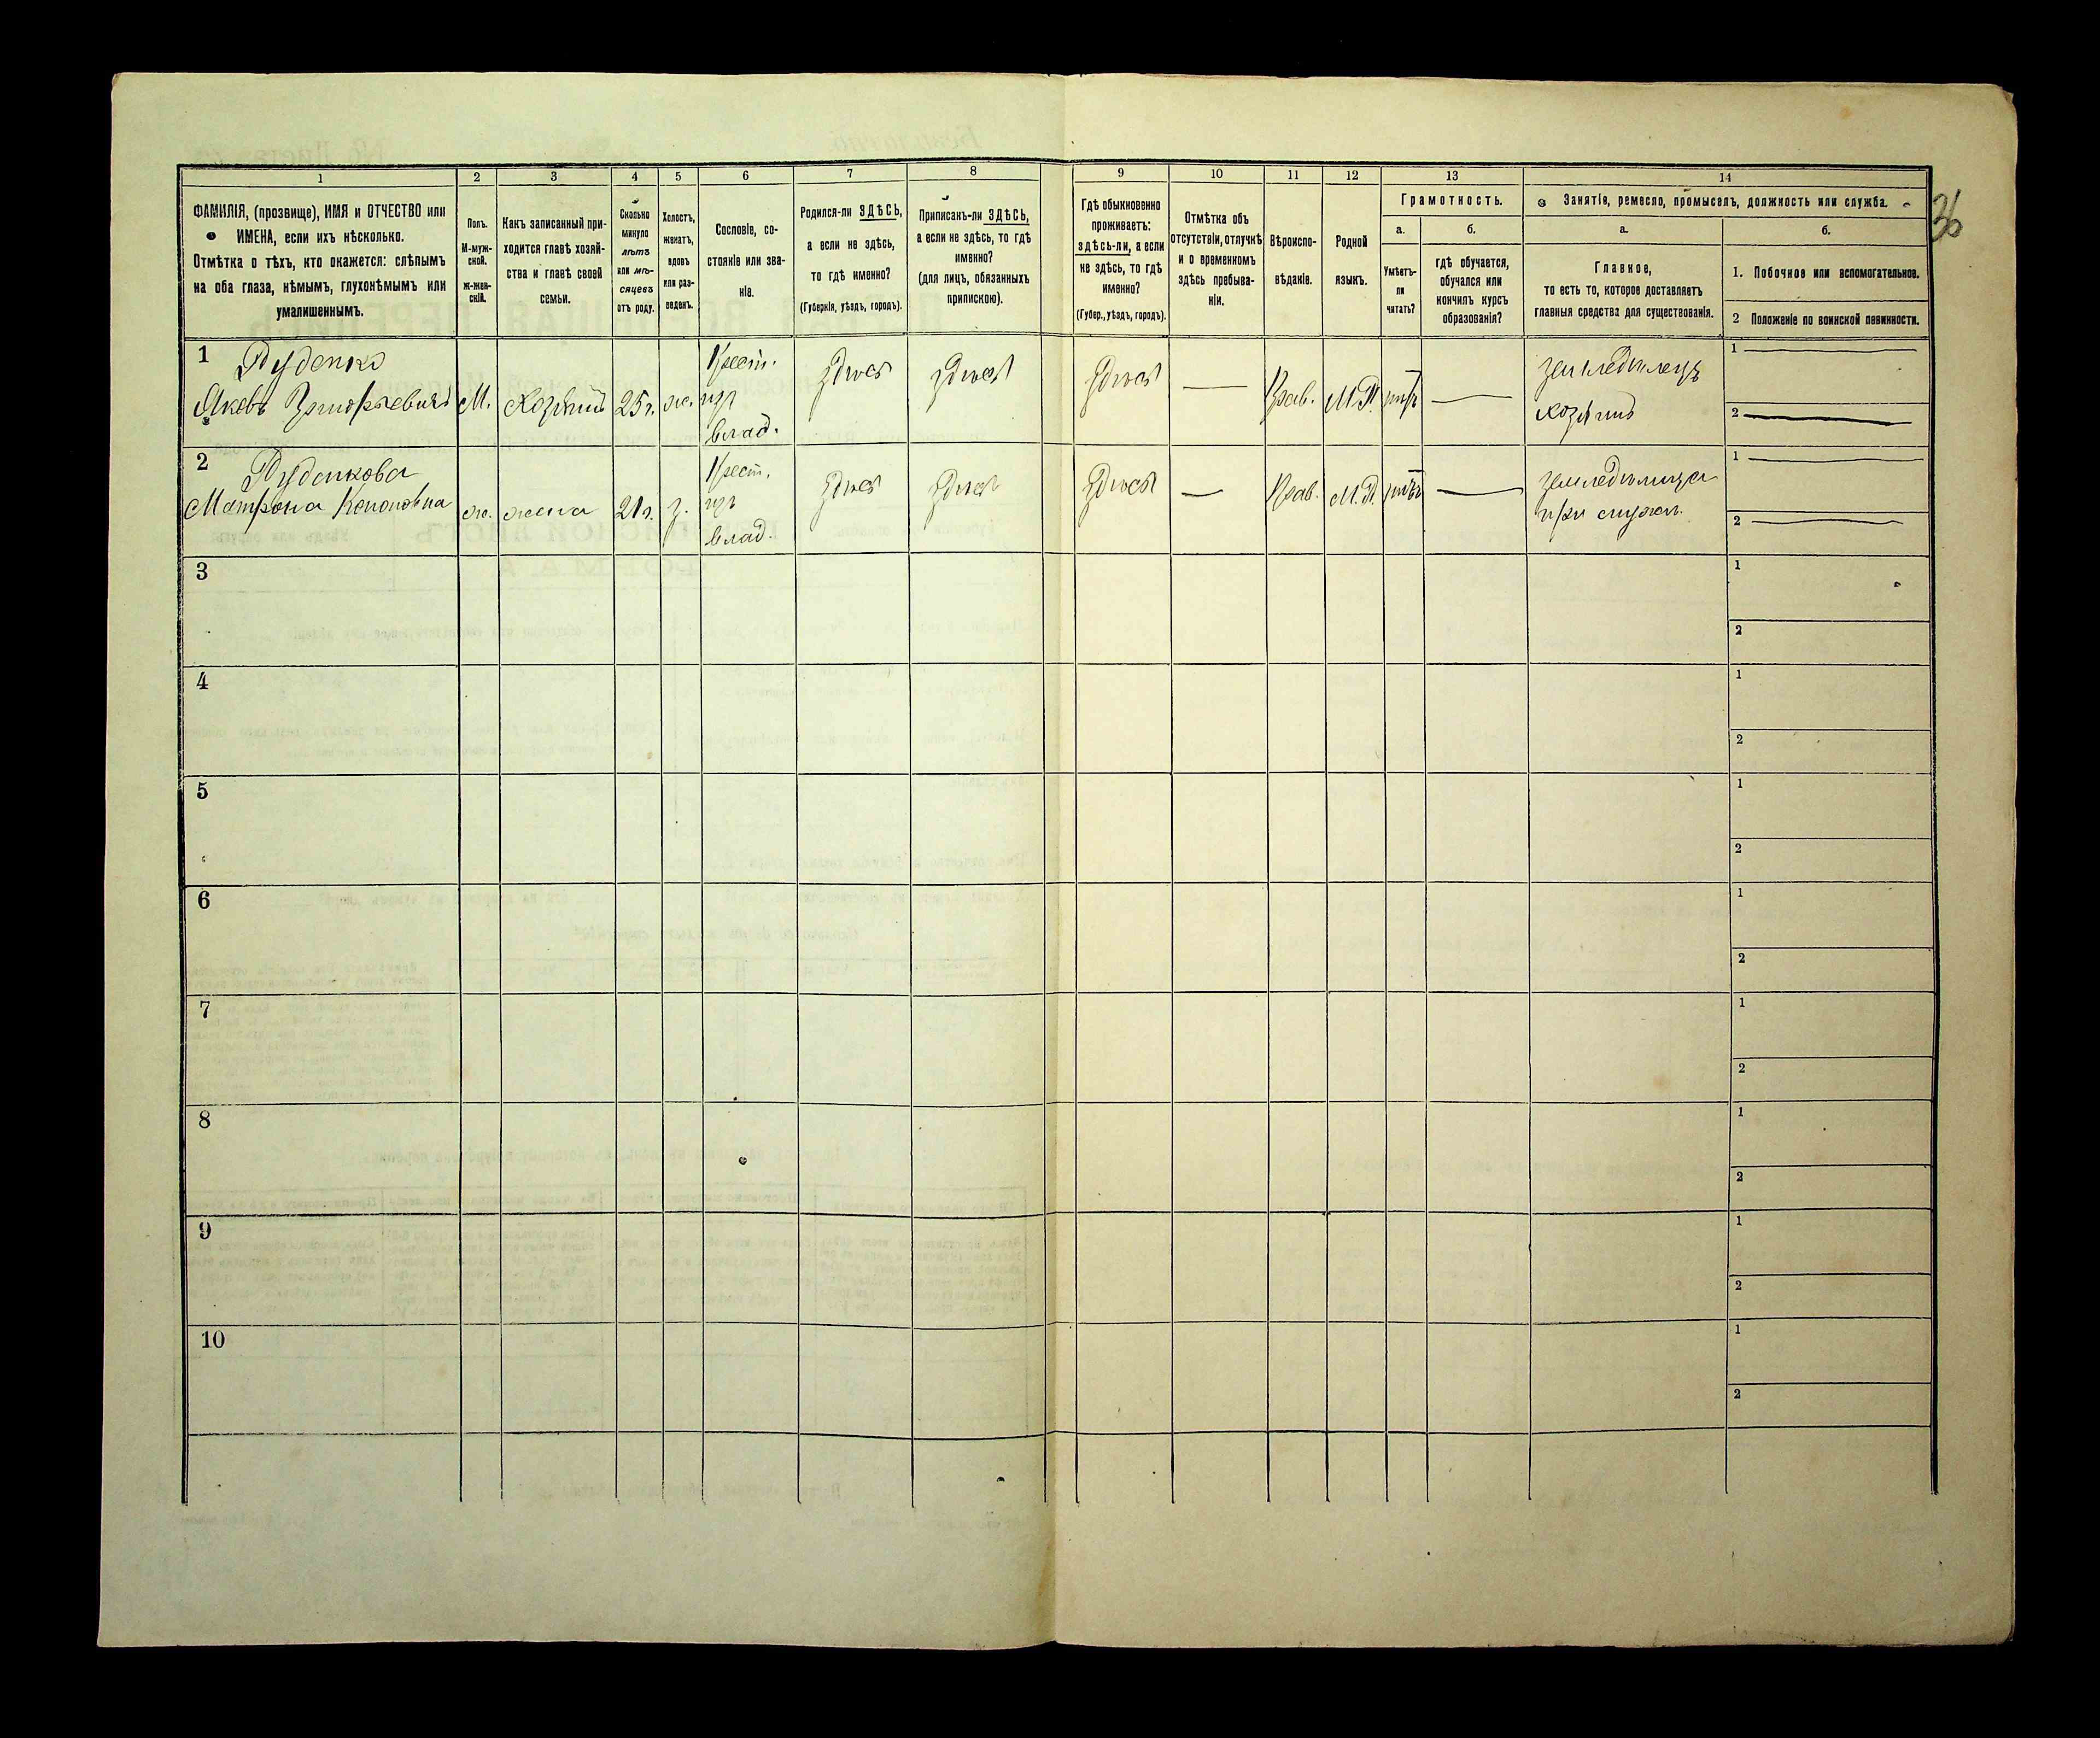 36
1
2
3
4
5
6
7
8
9
10
11
12
13
14
ФАМИЛІЯ, (прозвище), ИМЯ и ОТЧЕСТВО или
ИМЕНА, если ихъ нѣсколько.
Отмѣтка о тѣхъ, кто окажется: слѣпымъ
на оба глаза, нѣмымъ, глухонѣмымъ или
умалишеннымъ.
Полъ.
М-муж-
ской.
ж-жен-
скій.
Какъ записанный при-
ходится главѣ хозяй-
ства и главѣ своей
семьи.
Сколько
минуло
лѣтъ
или мѣ-
сяцевъ
отъ роду.
Холостъ,
женатъ,
вдовъ
или раз-
веденъ.
Сословіе, со-
стояніе или зва-
ніе.
Родился-ли ЗДѢСЬ,
а если не здѣсь,
то гдѣ именно?
(Губернія, уѣздъ, городъ).
Приписанъ-ли ЗДѢСЬ,
а если не здѣсь, то гдѣ
именно?
(для лицъ, обязанныхъ
припискою).
Гдѣ обыкновенно
проживаетъ:
здѣсь-ли, а если
не здѣсь, то гдѣ
именно?
(Губер., уѣздъ, городъ).
Отмѣтка объ
отсутствіи, отлучкѣ
и о временномъ
здѣсь пребыва-
ніи.
Вѣроиспо-
вѣданіе.
Родной
языкъ.
Грамотность.
а.
Умѣетъ-
ли
читать?
б.
гдѣ обучается,
обучался или
кончилъ курсъ
образованія?
Занятіе, ремесло, промыселъ, должность или служба.
а.
Главное,
то есть то, которое доставляетъ
главныя средства для существованія.
б.
1. Побочное или вспомогательное.
2 Положеніе по воинской повинности.
1
Руденко
Яковъ
М.
Хозяинъ
25 г.
ж.
Крест.
изъ
влад.
Здѣсь
Здѣсь
Здѣсь
Прав.
М.Р.
нѣтъ
земледѣлецъ
хозяинъ
1
2
2
Руденкова
Матрона Кононовна
ж.
жена
21 г.
з.
Крест.
изъ
влад.
Здѣсь
Здѣсь
Здѣсь
Прав.
М.Р.
нѣтъ
при
1
2
3
1
2
4
1
2
5
1
2
6
1
2
7
1
2
8
1
2
9
1
2
10
1
2